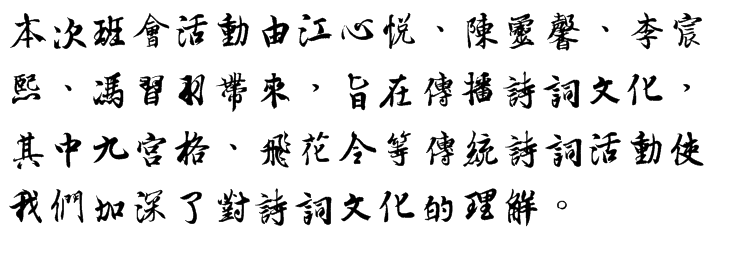 本次班會活動由江心悅、陳靈馨、李宸
熙、馮習羽帶來，旨在傳播詩詞文化，
其中九宮格、飛花令等傳統詩詞活動使
我們加深了對詩詞文化的理解。